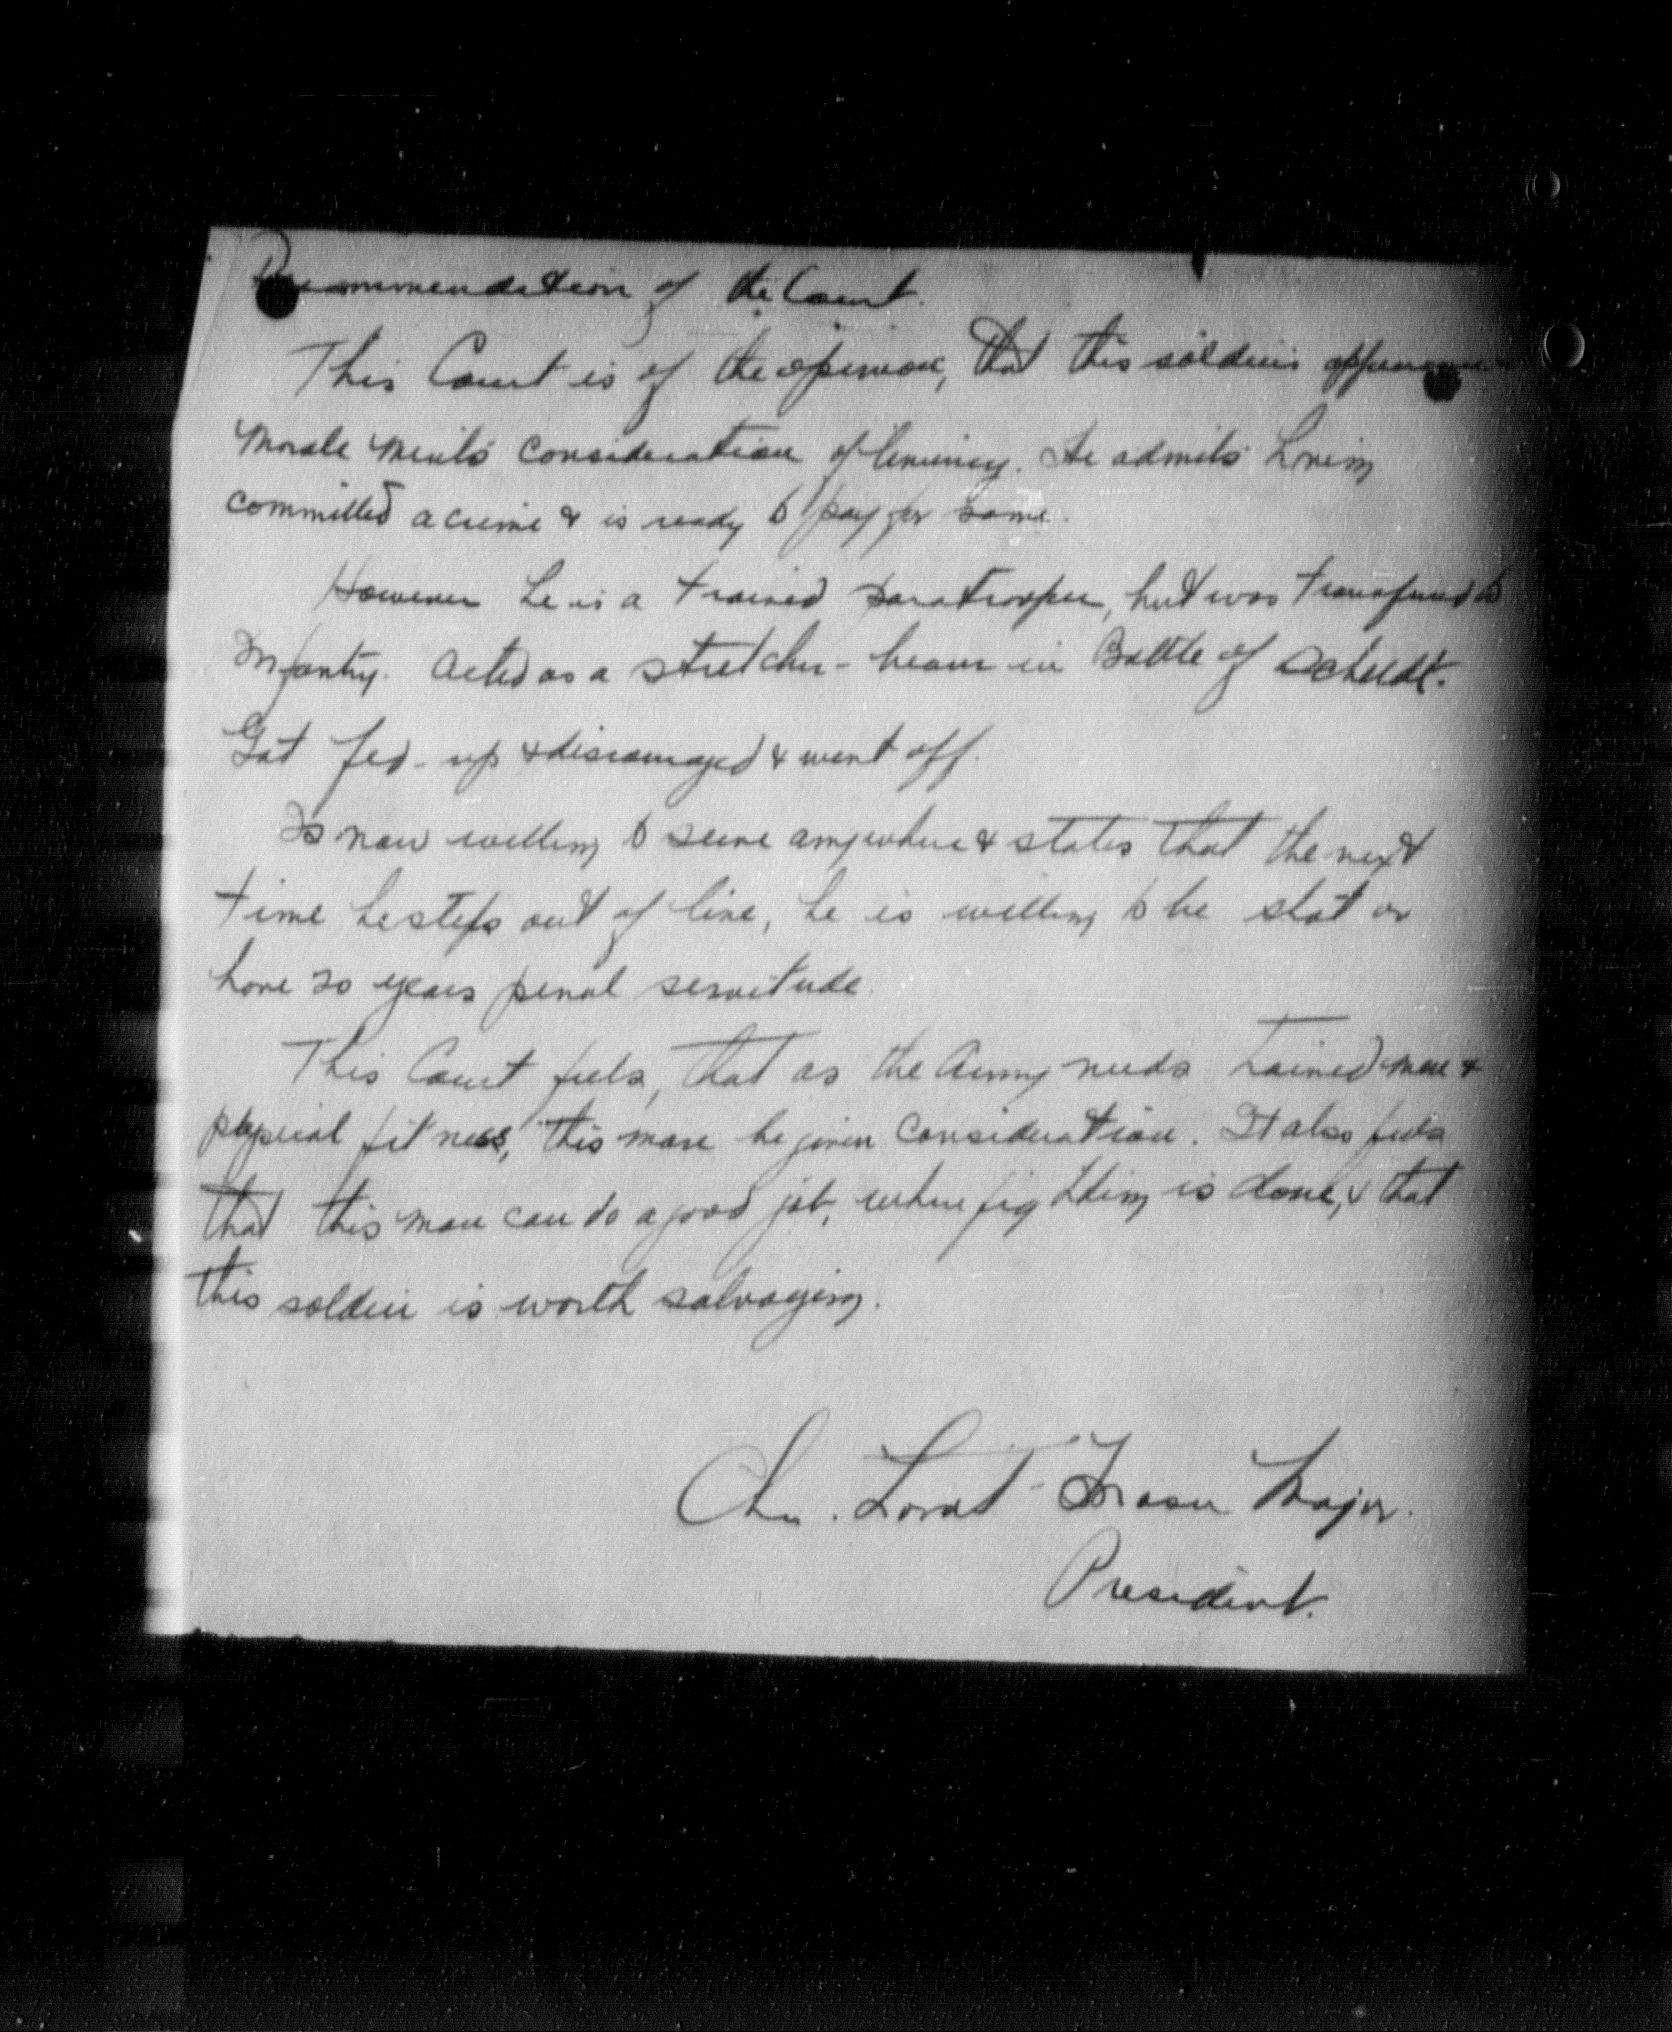 Recommendation of the Court.
This Court is of the opinion, that this soldiers appearance
morale merits consideration of leniency. He admits having
committed a crime & is ready to pay for same.
However he is a trained paratrooper, but was transferred to
Infantry. Acted as a stretcher-bearer in Battle of Scheldt.
Got fed-up & discouraged & went off.
Is now willing to serve anywhere & states that the next
time he steps out of line, he is willing to be shot or
have 20 years penal servitude.
This Court feels, that as the Army needs trained men &
physical fitness, this man be given consideration. It also feels
that this man can do a good job, where fighting is done, & that
this soldier is worth salvaging.
Lovat-Fraser Major.
President.